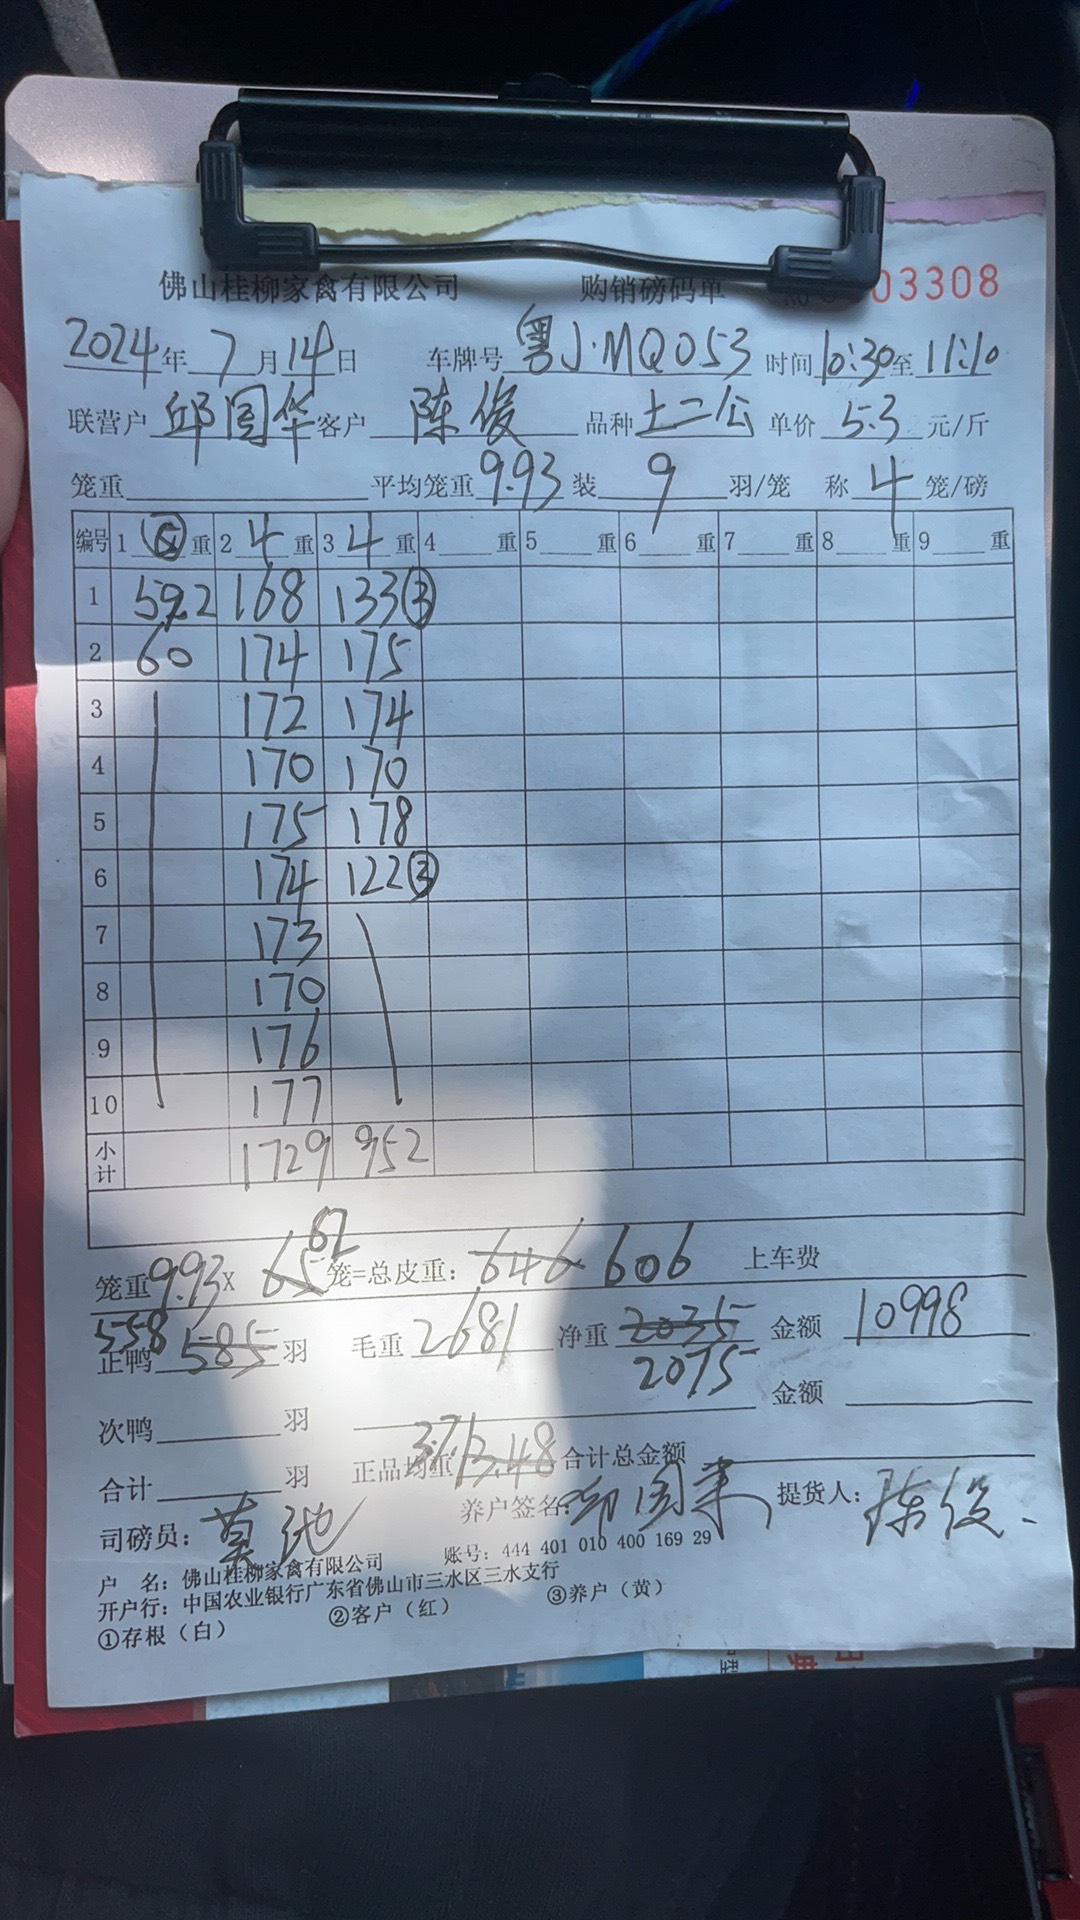 佛山桂柳家禽有限公司 购销磅码单 03308
2024年 7月14日 车牌号 粤J·MQ053 时间10:30至11:10
联营户 邱国华 客户 陈俊 品种 土二公 单价 5.3 元/斤
笼重 平均笼重 9.93 装 9 羽/笼 称 4 笼/磅
编号 1 重 2 4 重 3 4 重 4 重 5 重 6 重 7 重 8 重 9 重
1 59.2 168 133③
2 60 174 175
3 172 174
4 170 170
5 175 178
6 174 122③
7 173
8 170
9 176
10 177
小计 1729 952
62
笼重 9.93 X 65 笼=总皮重: 646 606 上车费
558
正鸭 585 羽 毛重 2681 净重 2035 金额 10998
2075
次鸭 羽 金额
合计 羽 正品均重 3.48 合计总金额
司磅员: 养户签名: 邱国华 提货人: 陈俊
户 名: 佛山桂柳家禽有限公司 账号: 444 401 010 400 169 29
开户行: 中国农业银行广东省佛山市三水区三水支行
①存根(白) ②客户(红) ③养户(黄)